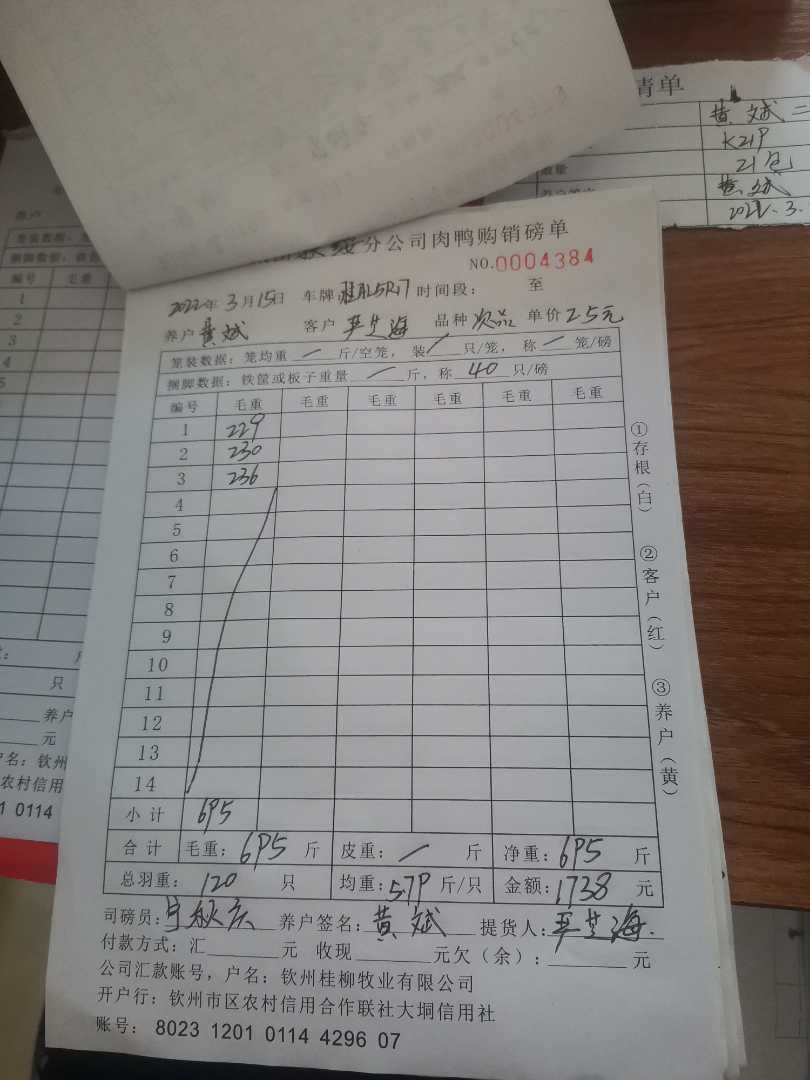 清单
黄斌二
K21P
21包
数量
黄斌
2022.3.
分公司肉鸭购销磅单
NO.0004384
2022年3月15日 车牌 时间段: 至
养户 黄斌 客户 严兰海 品种 次品 单价 2.5元
笼装数据: 笼均重 — 斤/空笼, 装 — 只/笼, 称 — 笼/磅
捆脚数据: 铁筐或板子重量 — 斤, 称 40 只/磅
编号 毛重 毛重 毛重 毛重 毛重 毛重
1 229
2 230
3 236
4
5
6
7
8
9
10
11
12
13
14
小计 695
合计 毛重: 695 斤 皮重: — 斤 净重: 695 斤
总羽重: 120 只 均重: 5.79 斤/只 金额: 1738 元
司磅员: 养户签名: 黄斌 提货人: 严兰海
付款方式: 汇 元 收现 元欠(余): 元
公司汇款账号, 户名: 钦州桂柳牧业有限公司
开户行: 钦州市区农村信用合作联社大垌信用社
账号: 8023 1201 0114 4296 07
①存根(白)
②客户(红)
③养户(黄)
养户
笼装数据:
捆脚数据:
编号 毛重
1
2
3
4
5
只
养户
元
户名: 钦州
农村信用
1 0114